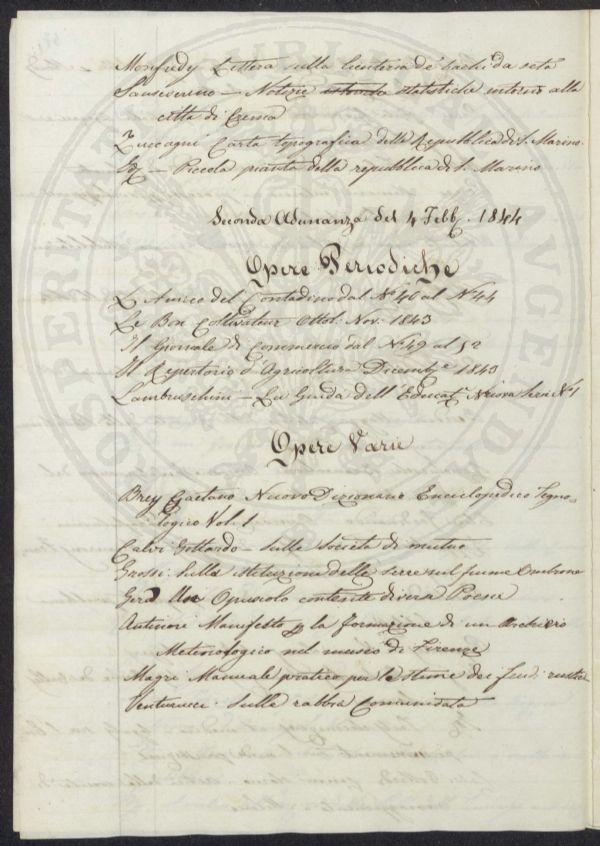 Monfredy Lettera sulla Lucuteria de' bachi da seta
Sanseverino — Notizie statistiche intorno alla
città di Crema
Zuccagni Carta topografica della Repubblica di S. Marino.
Ed — Piccola pianta della repubblica di S. Marino
Seconda Adunanza del 4 Febb. 1844
Opere Periodiche
L'Amico del Contadino dal N° 40 al N° 44
Le Bon Cultivateur Ottob. Nov. 1843
Il Giornale di Commercio dal N° 49 al 52
Il Repertorio d'Agricoltura Dicembre 1843
Lambruschini — La Guida dell'Educat.e Nuova Serie N° 1
Opere Varie
Brey Gaetano Nuovo Dizionario Enciclopedico Tegno-
logico Vol. 1
Calvi Gottardo — Sulle Società di mutuo
Grossi Sulla istituzione delle serre sul fiume Ombrone
Opuscolo contenente diverse Poesie
Antinore Manifesto p la formazione di un Archivio
Meteriologico nel museo di Firenze
Magri Manuale pratico per le stime dei fondi rustici
Venturucci Sulle rabbia Comunicata
PROSPERITATI PUBLICAE AVGENDAE